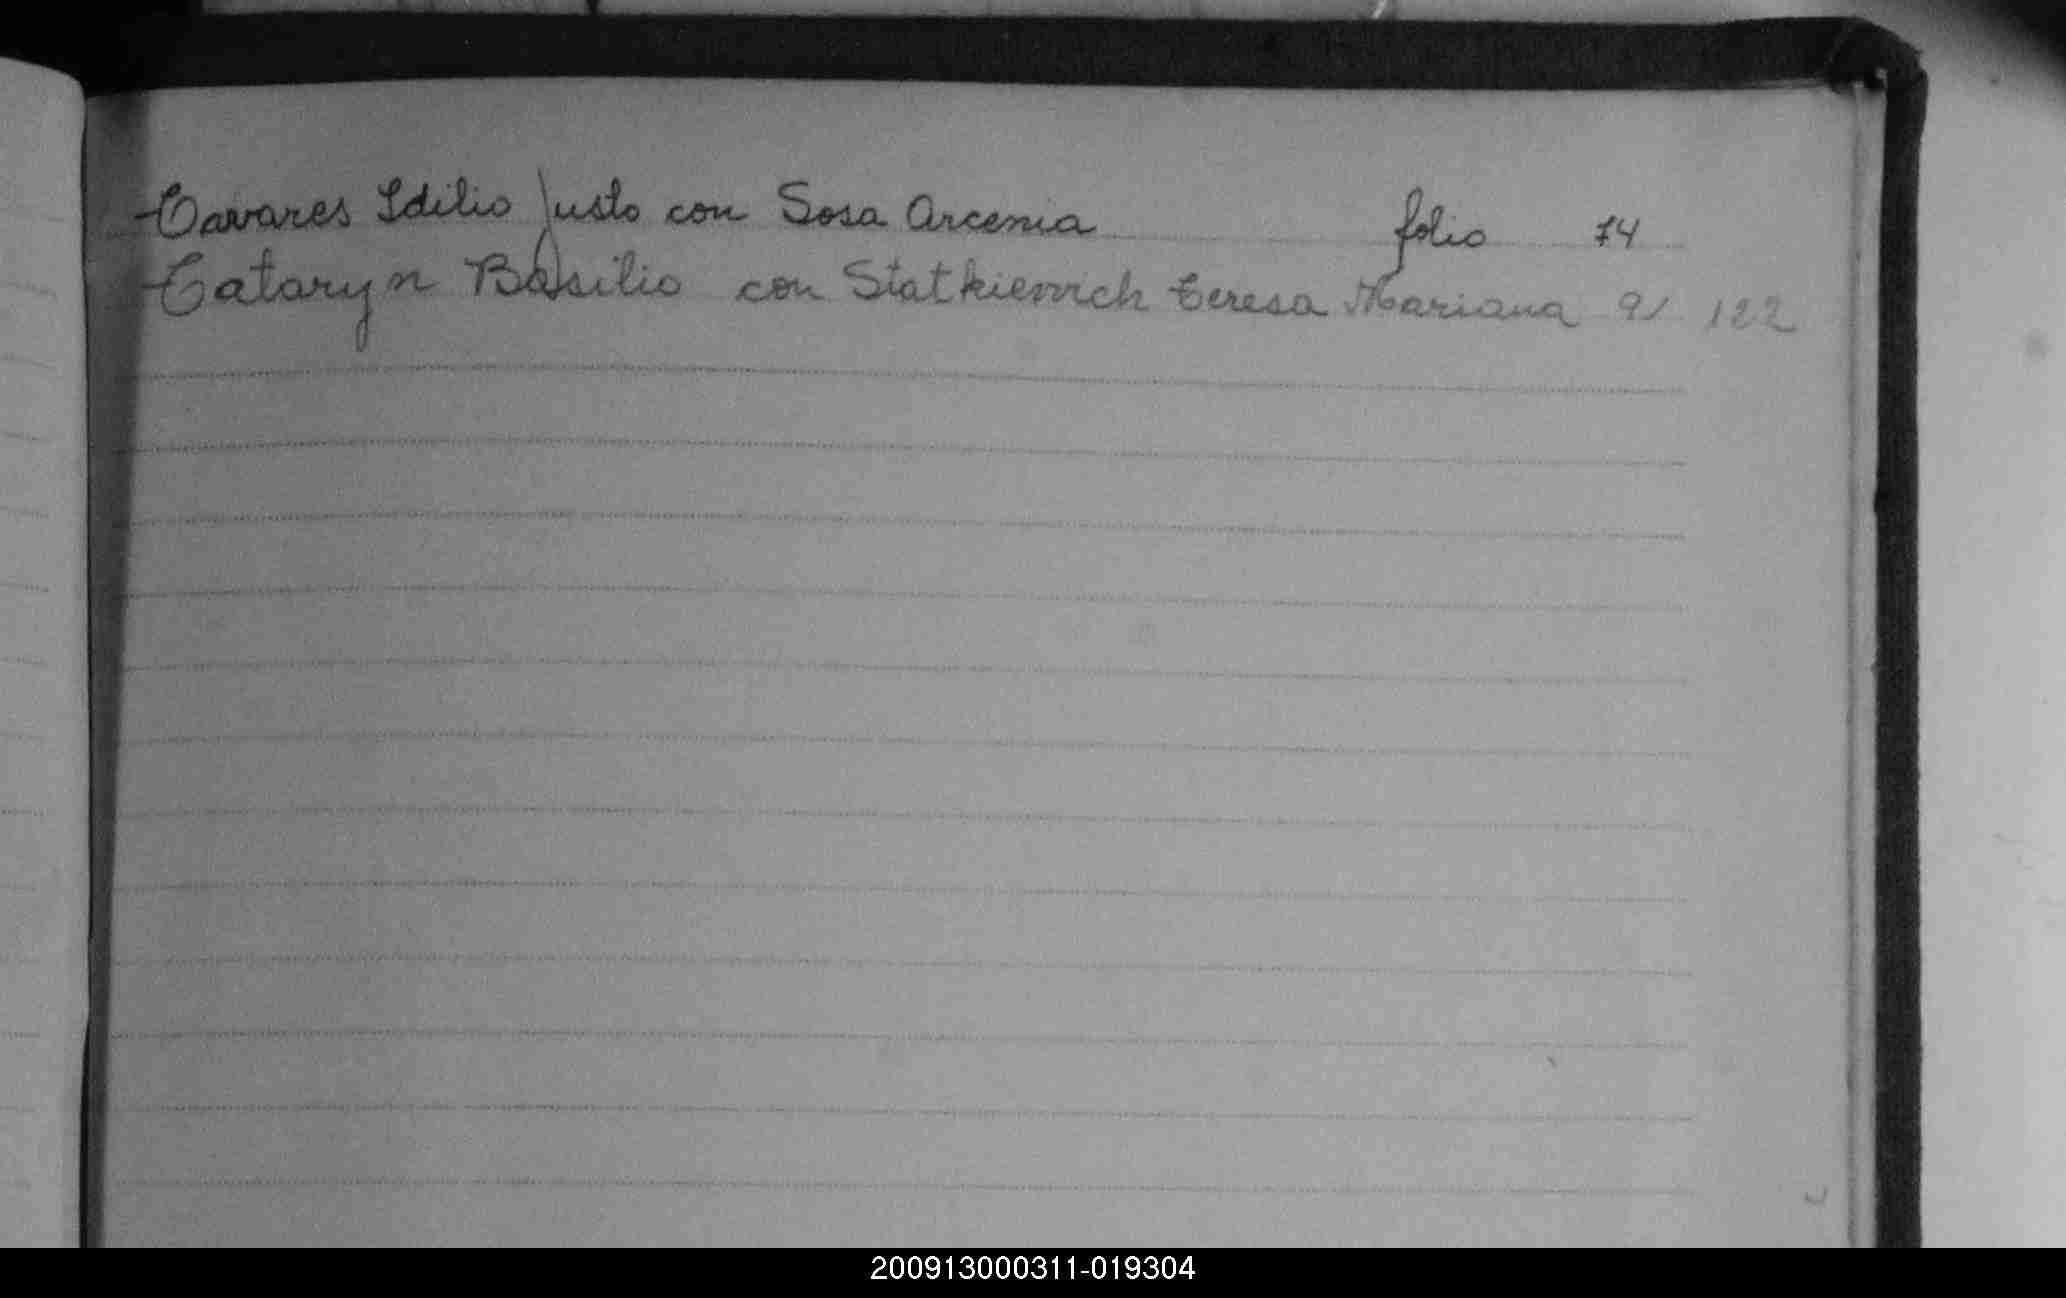 Tavares Idilio Justo con Sosa Arcenia folio 74
Tataryn Basilio con Statkievich Teresa Mariana 122
200913000311-019304